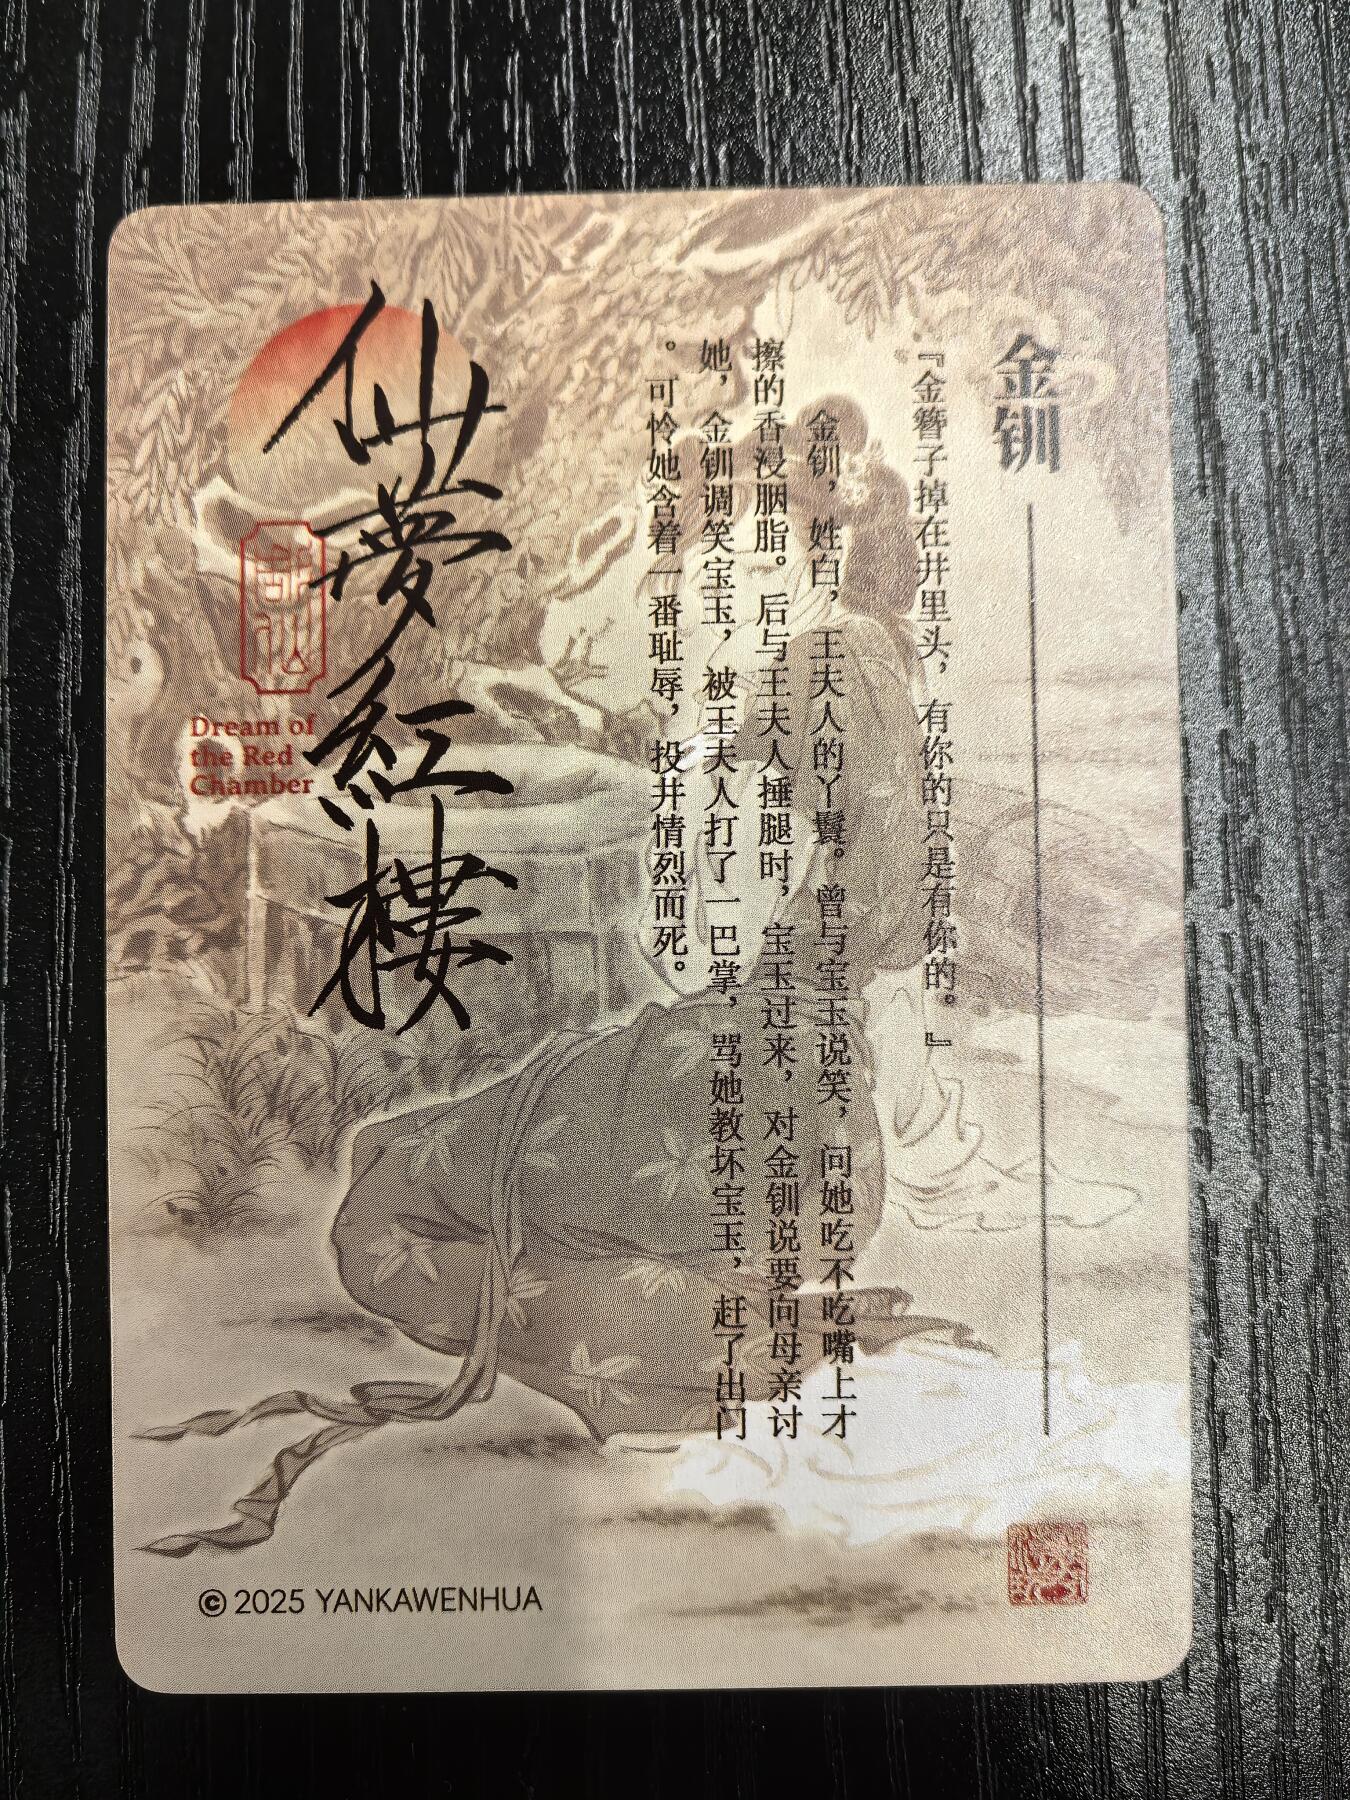 金钏
『金簪子掉在井里头，有你的只是有你的。』
金钏，姓白，王夫人的丫鬟。曾与宝玉说笑，问她吃不吃嘴上才
擦的香浸胭脂。后与王夫人捶腿时，宝玉过来，对金钏说要向母亲讨
她，金钏调笑宝玉，被王夫人打了一巴掌，骂她教坏宝玉，赶了出门
。可怜她含着一番耻辱，投井情烈而死。
仙夢紅樓
Dream of
the Red
Chamber
© 2025 YANKAWENHUA